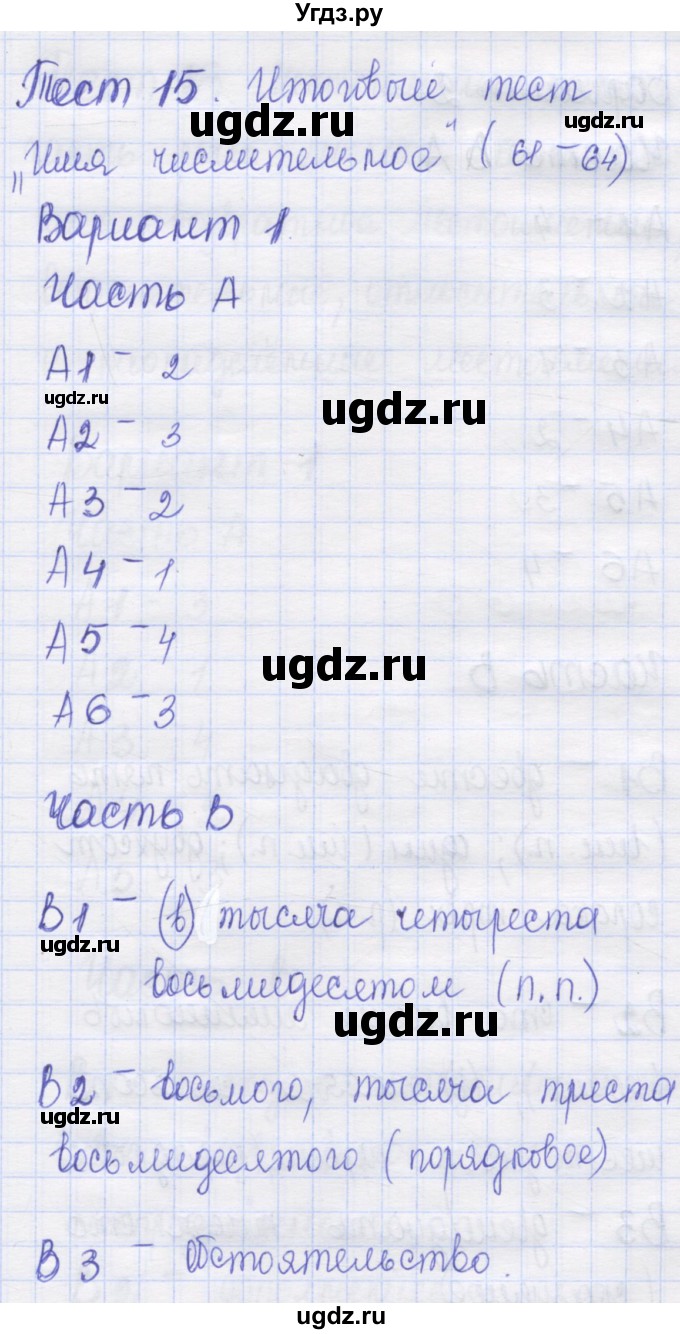 Угдз.ру
Тест 15. Итоговый тест
„Имя числительное" (61-64)
Вариант 1.
Часть А
А1 - 2
ugdz.ru
ugdz.ru
А2 - 3
А3 - 2
А4 - 1
А5 - 4
ugdz.ru
А6 - 3
Часть В
В1 - (в) тысяча четыреста
ugdz.ru
восьмидесятом (п.п.)
ugdz.ru
В2 - восьмого, тысяча триста
ugdz.ru
восьмидесятого (порядковое)
В3 - Обстоятельство.
ugdz.ru
ugdz.ru